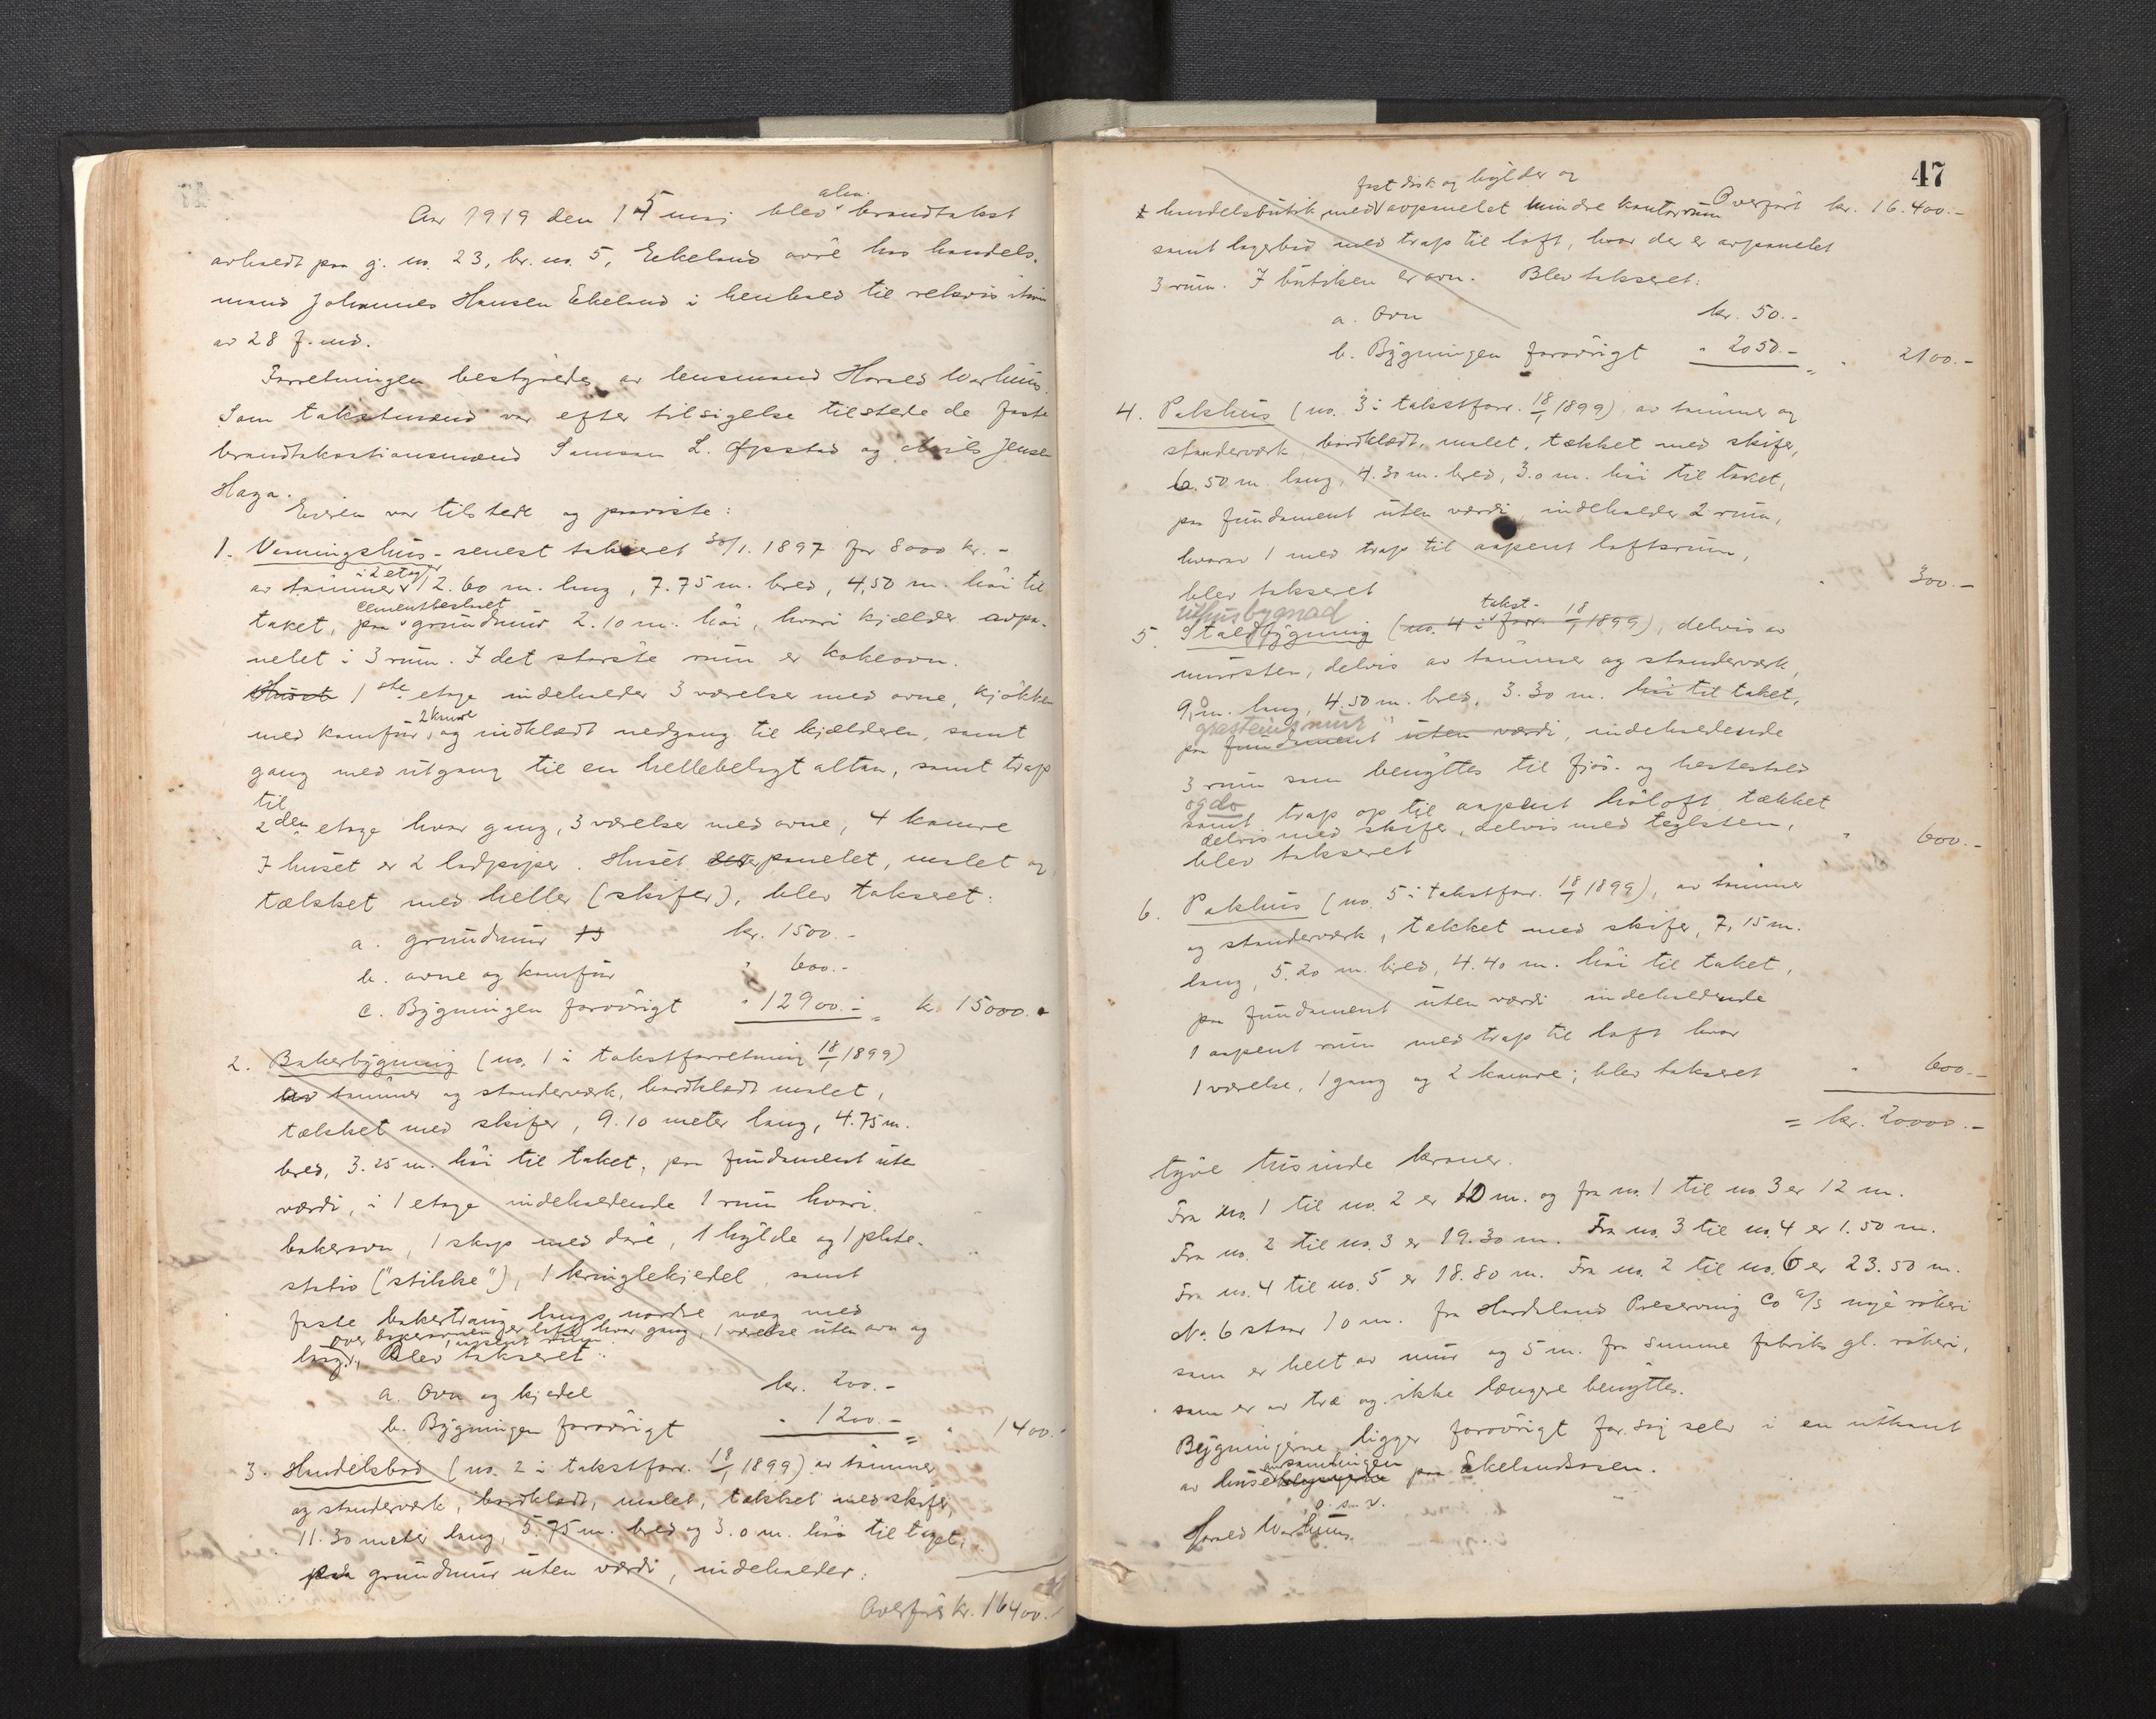 alm.
Aar 1919 den 15 mai blev brandtakst
avholdt paa g. no. 23, br. no. 5, Ekeland øvre hos handels-
mand Johannes Hansen Ekeland i henhold til rekvisition
av 28 f. md.
Forretningen bestyredes av lensmand Harald Warhuus.
Som takstmænd var efter tilsigelse tilstede de faste
brandtakstionsmænd Samson L. Øpstad og Nils Jensen
Haga.
Eieren var tilstede og paaviste:
1. Vaaningshus - senest takseret 30/1. 1897 for 8000 kr. -
i 2 etager
av tømmer 12.60 m. lang, 7.75 m. bred, 4,50 m. høi til
cementbeslaaet
taket, paa grundmur 2.10 m. høi, hvori kjælder avpa-
nelet i 3 rum. I det største rum er kokeovn.
Huset 1ste etage indeholder 3 værelser med ovne, kjøkken
2 kamre
med komfur, og indklædt nedgang til kjælderen, samt
gang med utgang til en hellebelagt altan, samt trap
til
2den etage hvor gang, 3 værelser med ovne, 4 kamre
I huset er 2 ladpiper. Huset er panelet, malet og
tækket med heller (skifer), blev takseret:
a. grundmur kr. 1500.-
b. ovne og komfur " 600.-
c. Bygningen forøvrigt " 12900.- = kr. 15000.-
2. Bakerbygning (no. 1 i takstforretning 18/1 1899)
av tømmer og standerværk, bordklædt malet,
tækket med skifer, 9.10 meter lang, 4.75 m.
bred, 3.25 m. høi til taket, paa fundament uten
værdi, i 1 etage indeholdende 1 rum hvori
bakerovn, 1 skap med døre, 1 hylde og 1 plate-
stativ ("stikke"), 1 kringlekjedel, samt
faste bakertrauger langs nordre væg med
over bakerovnen er loft hvor gang, 1 værelse uten ovn og
1 aapent rum
laag, Blev takseret:
a. Ovn og kjedel kr. 200.-
b. Bygningen forøvrigt " 1200.- = " 1400.-
3. Handelsbod (no. 2 i takstforr. 18/1 1899) av tømmer
og standerværk, bordklædt, malet, tækket med skifer,
11.30 meter lang, 5.75 m. bred og 3.0 m. høi til taget,
paa grundmur uten værdi, indeholder:
Overføres kr. 16400.-
47
fast disk og hylder og
Overført kr. 16.400.-
handelsbutik, med avpanelet mindre kontorrum
samt lagerbod med trap til loft, hvor der er avpanelet
3 rum. I butiken er ovn. Blev takseret:
a. Ovn kr. 50.-
b. Bygningen forøvrigt " 2050.- = " 2100.-
4. Pakhus (no. 3 i takstforr. 18/1 1899) av tømmer og
standerværk, bordklædt, malet, tækket med skifer,
6.50 m. lang, 4.30 m. bred, 3.0 m. høi til taket,
paa fundament uten værdi, indeholder 2 rum,
hvorav 1 med trap til aapent loftsrum,
blev takseret " 300.-
uthusbygnad
takst-
5. Staldbygning (no. 4 i forr. 18/1 1899), delvis av
mursten, delvis av tømmer og standerværk,
9,0 m. lang, 4.50 m. bred, 3.30 m. høi til taket,
graasteinsmur
paa fundament uten værdi, indeholdende
3 rum som benyttes til fjøs- og hestestald
og do
samt trap op til aapent høiloft tækket
delvis med skifer, delvis med teglsten,
blev takseret " 600.-
6. Pakhus (no. 5 i takstforr. 18/1 1899), av tømmer
og standerværk, tækket med skifer, 7,15 m.
lang, 5.20 m. bred, 4.40 m. høi til taket,
paa fundament uten værdi indeholdende
1 aapent rum med trap til loft hvor
1 værelse, 1 gang og 2 kamre; blev takseret " 600.-
= kr. 20000.-
tyve tusinde kroner.
Fra no. 1 til no. 2 er 10 m. og fra no. 1 til no. 3 er 12 m.
Fra no. 2 til no. 3 er 19.30 m. Fra no. 3 til no. 4 er 1.50 m.
Fra no. 4 til no. 5 er 18.80 m. Fra no. 2 til no. 6 er 23.50 m.
No. 6 staar 10 m. fra Hardeland Preserving Co a/s nye røkeri
som er helt av mur og 5 m. fra samme fabriks gl. røkeri,
som er av træ og ikke længere benyttes.
Bygningerne ligger forøvrigt for sig selv i en utkant
ansamlingen
av huse paa Ekelandsosen.
o. s. v.
Harald Warhuus.